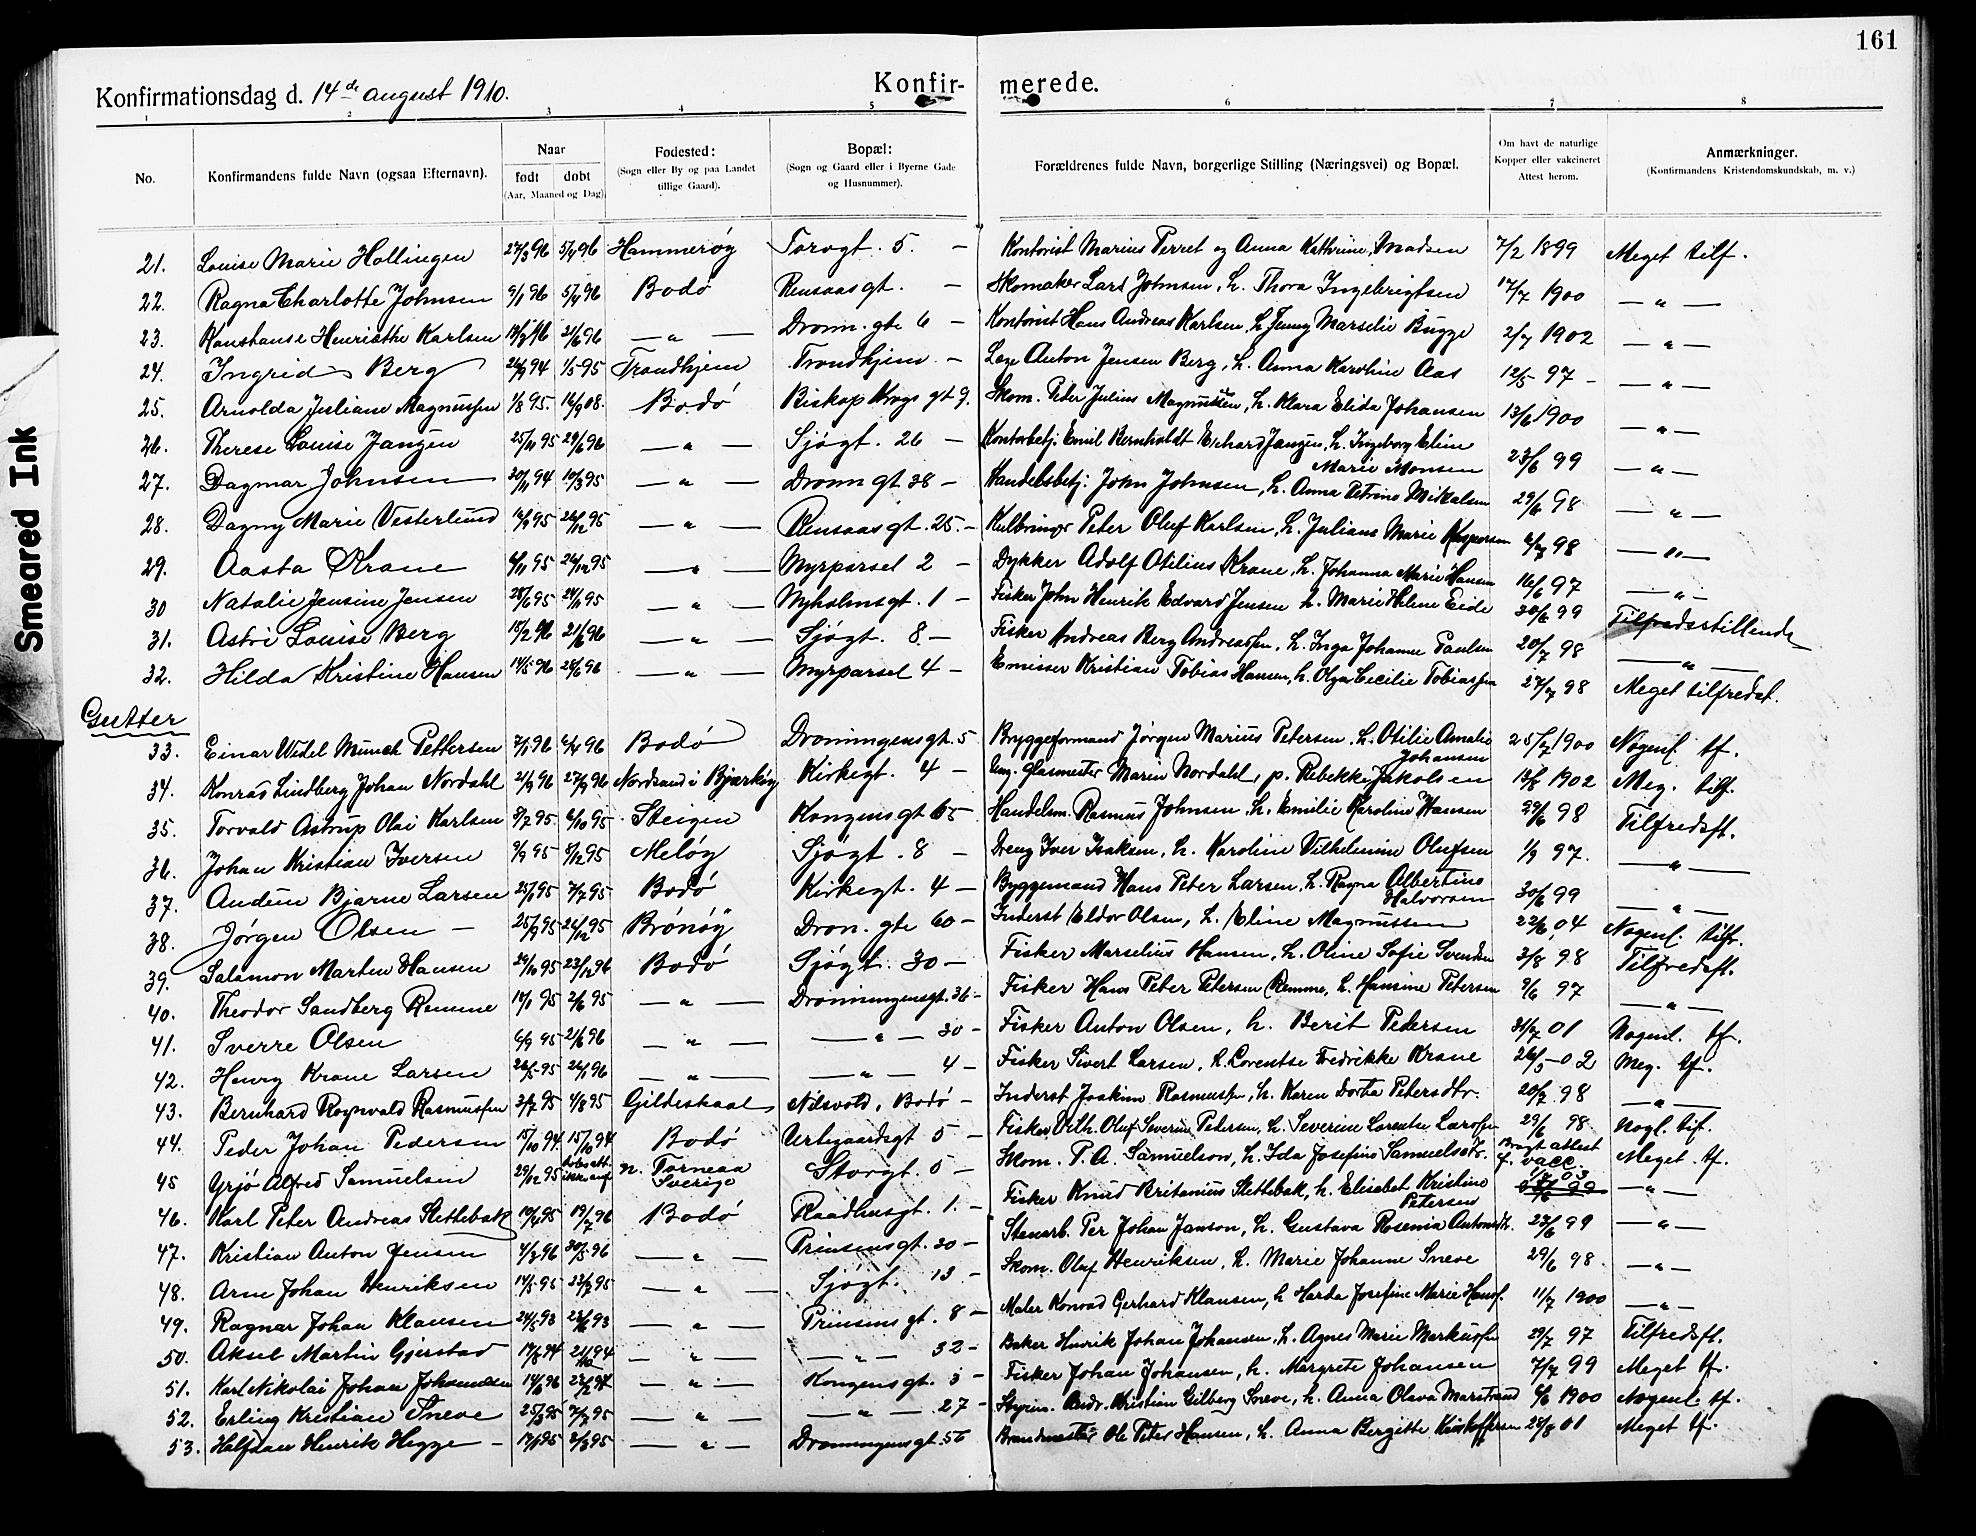 161
Konfirmationsdag d. 14de august 1910.
Konfir- merede.
1 2 3 4 5 6 7 8
No.
Konfirmandens fulde Navn (ogsaa Efternavn).
Naar
født døbt
(Aar, Maaned og Dag).
Fødested:
(Sogn eller By og paa Landet tillige Gaard).
Bopæl:
(Sogn og Gaard eller i Byerne Gade og Husnummer).
Forældrenes fulde Navn, borgerlige Stilling (Næringsvei) og Bopæl.
Om havt de naturlige Kopper eller vakcineret Attest herom.
Anmærkninger.
(Konfirmandens Kristendomskundskab, m. v.)
21. Louise Marie Hollingen 27/3 96 5/4 96 Hammerøy Torvgt. 5. — Kontorist Marius Perret og Anna Kathrine Madsen 7/2 1899 Meget tilf.
22. Ragna Charlotte Johnsen 9/1 96 5/4 96 Bodø Rensaasgt. — Skomaker Lars Johnsen, h. Thora Ingebrigtsen 17/7 1900 — " —
23. Konstanse Henriette Karlsen 21/6 96 — " — Dronn. gte 6 — Kontorist Hans Andreas Karlsen, h. Jenny Marselie Bugge 2/7 1902 — " —
24. Ingrid Berg 94 1/5-95 Trondhjem Trondhjem — Anton Jensen Berg, h. Anna Karoline Aas 12/5 97 — — " —
25. Arnolda Juliane Magnussen 1/8 95. 16/9 08. Bodø Biskop Krogs gt 9. Skom. Peter Julius Magnussen, h. Klara Elida Johansen 13/6 1900 — " —
26. Therese Louise Janzen 25/11 95 29/6 96 — " — Sjøgt. 26 — Kontorbetj. Emil Bernholdt Janzen, h. Ingeborg Eline Marie Monsen 23/6 99 — " —
27. Dagmar Johnsen 20/11 94 10/3 95 — " — Dronn gt 38 — Handelsbetj: John Johnsen, h. Anna Petrine Mikalsen 29/6 98 — " —
28. Dagny Marie Vesterlund 95 26/12 95 — " — Rensaasgt. 25. — Peter Oluf Karlsen, h. Juliane Marie Kaspersen 98 — " —
29. Aasta Krane 6/11 95 26/12 95 — " — Myrparsel 2 — Dykker Adolf Otilius Krane, h. Johanna Marie Hansen 16/6 97 — " —
30 Natalie Jensine Jensen 25/6 95 24/11 95 — " — Nyholmsgt. 1 — Fisker John Henrik Edvard Jensen h. Marie Helene Eide 30/6 99 Tilfredsstillende
31. Astri Louise Berg 15/2 96 21/6 96 — " — Sjøgt. 8 — Fisker Andreas Berg Andreassen, h. Inga Johanne Paulsen 20/7 98 — " —
32. Hilda Kristine Hansen 14/5 96 28/6 96 — " — Myrparsel 4 — Emisser Kristian Tobias Hansen, h. Olga Cecilie Tobiassen 27/7 98 Meget tilfredst.
Gutter
33. Einar Widel Munch Pettersen 7/1 96 6/4 96 Bodø Dronningensgt. 5 Bryggeformand Jørgen Marius Petersen, h. Otilie Amalie Johansen 25/7 1900 Nogenl. tf.
34. Konrad Lindberg Johan Nordahl 27/9 96 Nordsand i Bjarkøy Kirkegt. 4 — Ung. glasmester Marin Nordahl, p. Rebekke Jakobsen 13/8 1902 Meg. tilf.
35. Torvald Astrup Olai Karlsen 3/7 95. 6/10 95 Steigen Kongensgt 65 Handelsm. Rasmus Johnsen, h. Emilie Karoline Hansen 29/6 98 Tilfredsst.
36. Johan Kristian Iversen 9/9 95 8/12 95 Meløy Sjøgt. 8 — Dreng Iver Isaksen, h. Karoline Vilhelmine Olufsen 1/9 97. — " —
37. Bjarne Larsen 25/1 95 7/7 95 Bodø Kirkegt. 4 — Byggemand Hans Peter Larsen, h. Ragna Albertine Halvorsen 30/6 99 — " —
38. Jørgen Olsen — 25/9 95 26/12 95 Brønøy Dron. gte 60 — Inderst Eldor Olsen, h. Eline Magnussen 22/6 04 Nogenl. tilf.
39. Salamon Marten Hansen 29/10 95 23/12 96 Bodø Sjøgt. 30 — Fisker Marselius Hansen, h. Oline Sofie Svendsen 3/8 98 Tilfredsst.
40. Theodor Sandberg Remme 14/1 95 2/6 95 — " — Dronningensgt. 36 — Fisker Hans Peter Petersen Remme, h. Hansine Petersen 9/6 97 — " —
41. Sverre Olsen 6/9 95 21/6 96 — " — — " — 30 — Fisker Anton Olsen, h. Berit Pedersen 31/7 01 Nogenl. tf.
42. Henry Krane Larsen 26/5-95 26/1 96 — " — — " — 4 — Fisker Sivert Larsen, h. Lorentse Fredrikke Krane 26/5-02 Meg. tf.
43. Bernhard Rognvald Rasmussen 3/7 95 4/8 95 Gildeskaal Nilsvold, Bodø — Inderst Joakim Rasmussen, h. Karen Dortea Petersdtr. 20/7 98 — " —
44. Peder Johan Pedersen 15/10 94 15/10 94 Bodø Urtegaardsgt 5 — Fisker Vilh. Oluf Severin Petersen, h. Severine Lorentse Larssen 29/6 98 Nogl. tif.
45 Yrjø Alfred Samuelsen 29/12 95 dobsatt. ikke anf. n. Torneaa Sverige Storgt. 5 — Skom. P. A. Samuelson, h. Ida Josefine Samuelsdtr. Bragt attest f. vacc. Meget tf.
46. Karl Peter Andreas Slettebak 95 19/7 96 Bodø Raadhusgt. 1. — Fisker Knud Britanius Slettebak, h. Elisabet Kristine Petersen 03 — " —
47. Kristian Anton Jensen 4/3 96 30/5 96 — " — Prinsensgt. 30 — Stenarb. Per Johan Janson, h. Gustava Rosenia Antonsdtr. 23/6 99 — " —
48. Arne Johan Henriksen 14/5 95 23/7 95 — " — Sjøgt. 13 — Skom. Oluf Henriksen, h. Marie Johanne Sneve 29/6 98 — " —
49. Ragnar Johan Klausen 24/5 93 93 — " — Prinsens gt. 8 — Maler Konrad Gerhard Klausen, h. Harda Josefine Marie Hansen 11/7 1900 — " —
50. Aksel Martin Gjerstad 94 21/10 94 — " — — " — 32 — Baker Henrik Johan Johansen, h. Agnes Marie Markussen 29/7 97 Tilfredsst.
51. Karl Nikolai Johan Johannessen 96 94 — " — Kongensgt. 3 — Fisker Johan Johansen, h. Margrete Johansen 7/7 99 Meget tf.
52. Erling Kristian Sneve 25/3 95 7/7 95 — " — — " — 27 — Styrm. Andr. Kristian Gilberg Sneve, h. Anna Olava Marstrand 6/6 1900 Nogenl. tf.
53. Halfdan Henrik Higge — 95 95 — " — Dronningensgt. 56 Brandmester Ole Peter Hansen, h. Anna Bergitte Kristoffersen 25/8 01 Meget tf.
Smeared Ink